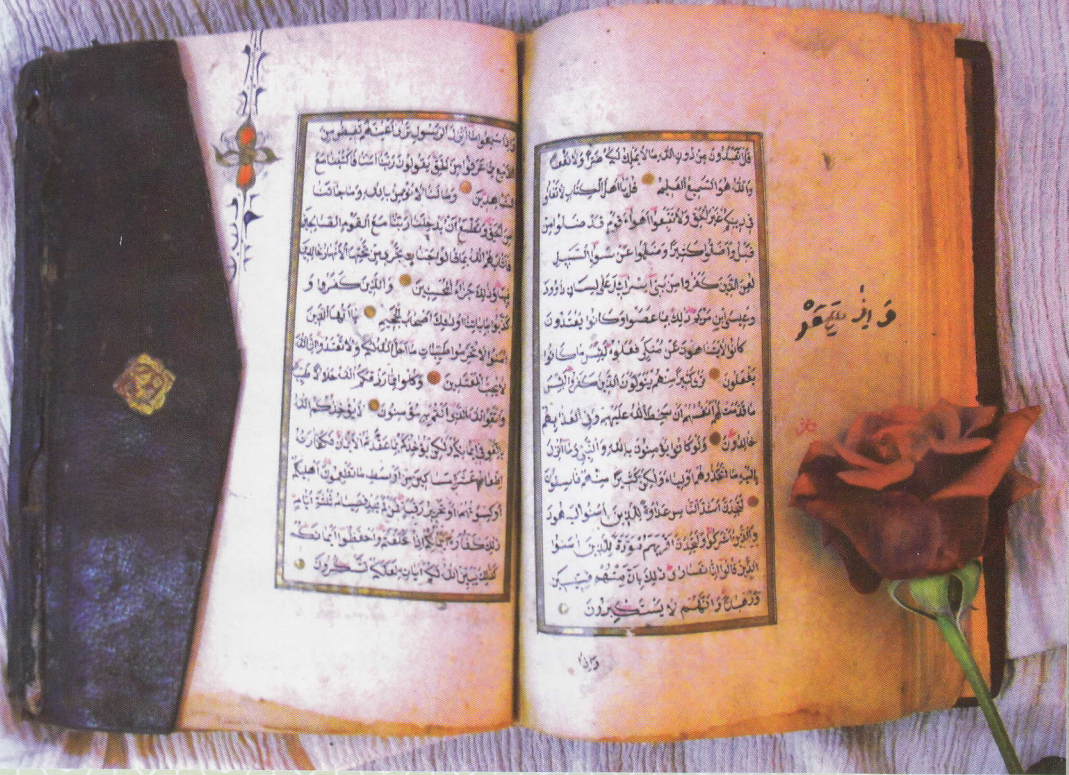 قُلْ أَتَعْبُدُونَ مِنْ دُونِ اللهِ مَا لَا يَمْلِكُ لَكُمْ ضَرًّا وَلَا نَفْعًا
وَاللهُ هُوَ السَّمِيعُ الْعَلِيمُ قُلْ يَا أَهْلَ الْكِتَابِ لَا تَغْلُوا
فِي دِينِكُمْ غَيْرَ الْحَقِّ وَلَا تَتَّبِعُوا أَهْوَاءَ قَوْمٍ قَدْ ضَلُّوا مِنْ
قَبْلُ وَأَضَلُّوا كَثِيرًا وَضَلُّوا عَنْ سَوَاءِ السَّبِيلِ
لُعِنَ الَّذِينَ كَفَرُوا مِنْ بَنِي إِسْرَائِيلَ عَلَى لِسَانِ دَاوُدَ
وَعِيسَى ابْنِ مَرْيَمَ ذَلِكَ بِمَا عَصَوْا وَكَانُوا يَعْتَدُونَ
كَانُوا لَا يَتَنَاهَوْنَ عَنْ مُنْكَرٍ فَعَلُوهُ لَبِئْسَ مَا كَانُوا
يَفْعَلُونَ تَرَى كَثِيرًا مِنْهُمْ يَتَوَلَّوْنَ الَّذِينَ كَفَرُوا لَبِئْسَ
مَا قَدَّمَتْ لَهُمْ أَنْفُسُهُمْ أَنْ سَخِطَ اللهُ عَلَيْهِمْ وَفِي الْعَذَابِ هُمْ
خَالِدُونَ وَلَوْ كَانُوا يُؤْمِنُونَ بِاللهِ وَالنَّبِيِّ وَمَا أُنْزِلَ
إِلَيْهِ مَا اتَّخَذُوهُمْ أَوْلِيَاءَ وَلَكِنَّ كَثِيرًا مِنْهُمْ فَاسِقُونَ
لَتَجِدَنَّ أَشَدَّ النَّاسِ عَدَاوَةً لِلَّذِينَ آمَنُوا الْيَهُودَ
وَالَّذِينَ أَشْرَكُوا وَلَتَجِدَنَّ أَقْرَبَهُمْ مَوَدَّةً لِلَّذِينَ آمَنُوا
الَّذِينَ قَالُوا إِنَّا نَصَارَى ذَلِكَ بِأَنَّ مِنْهُمْ قِسِّيسِينَ
وَرُهْبَانًا وَأَنَّهُمْ لَا يَسْتَكْبِرُونَ
وَإِذَا
وَإِذَا سَمِعُوا مَا أُنْزِلَ إِلَى الرَّسُولِ تَرَى أَعْيُنَهُمْ تَفِيضُ مِنَ
الدَّمْعِ مِمَّا عَرَفُوا مِنَ الْحَقِّ يَقُولُونَ رَبَّنَا آمَنَّا فَاكْتُبْنَا مَعَ
الشَّاهِدِينَ وَمَا لَنَا لَا نُؤْمِنُ بِاللهِ وَمَا جَاءَنَا
مِنَ الْحَقِّ وَنَطْمَعُ أَنْ يُدْخِلَنَا رَبُّنَا مَعَ الْقَوْمِ الصَّالِحِينَ
فَأَثَابَهُمُ اللهُ بِمَا قَالُوا جَنَّاتٍ تَجْرِي مِنْ تَحْتِهَا الْأَنْهَارُ خَالِدِينَ
فِيهَا وَذَلِكَ جَزَاءُ الْمُحْسِنِينَ وَالَّذِينَ كَفَرُوا وَ
كَذَّبُوا بِآيَاتِنَا أُولَئِكَ أَصْحَابُ الْجَحِيمِ يَا أَيُّهَا الَّذِينَ
آمَنُوا لَا تُحَرِّمُوا طَيِّبَاتِ مَا أَحَلَّ اللهُ لَكُمْ وَلَا تَعْتَدُوا إِنَّ اللهَ
لَا يُحِبُّ الْمُعْتَدِينَ وَكُلُوا مِمَّا رَزَقَكُمُ اللهُ حَلَالًا طَيِّبًا
وَاتَّقُوا اللهَ الَّذِي أَنْتُمْ بِهِ مُؤْمِنُونَ لَا يُؤَاخِذُكُمُ اللهُ
بِاللَّغْوِ فِي أَيْمَانِكُمْ وَلَكِنْ يُؤَاخِذُكُمْ بِمَا عَقَّدْتُمُ الْأَيْمَانَ فَكَفَّارَتُهُ
إِطْعَامُ عَشَرَةِ مَسَاكِينَ مِنْ أَوْسَطِ مَا تُطْعِمُونَ أَهْلِيكُمْ
أَوْ كِسْوَتُهُمْ أَوْ تَحْرِيرُ رَقَبَةٍ فَمَنْ لَمْ يَجِدْ فَصِيَامُ ثَلَاثَةِ أَيَّامٍ
ذَلِكَ كَفَّارَةُ أَيْمَانِكُمْ إِذَا حَلَفْتُمْ وَاحْفَظُوا أَيْمَانَكُمْ
كَذَلِكَ يُبَيِّنُ اللهُ لَكُمْ آيَاتِهِ لَعَلَّكُمْ تَشْكُرُونَ